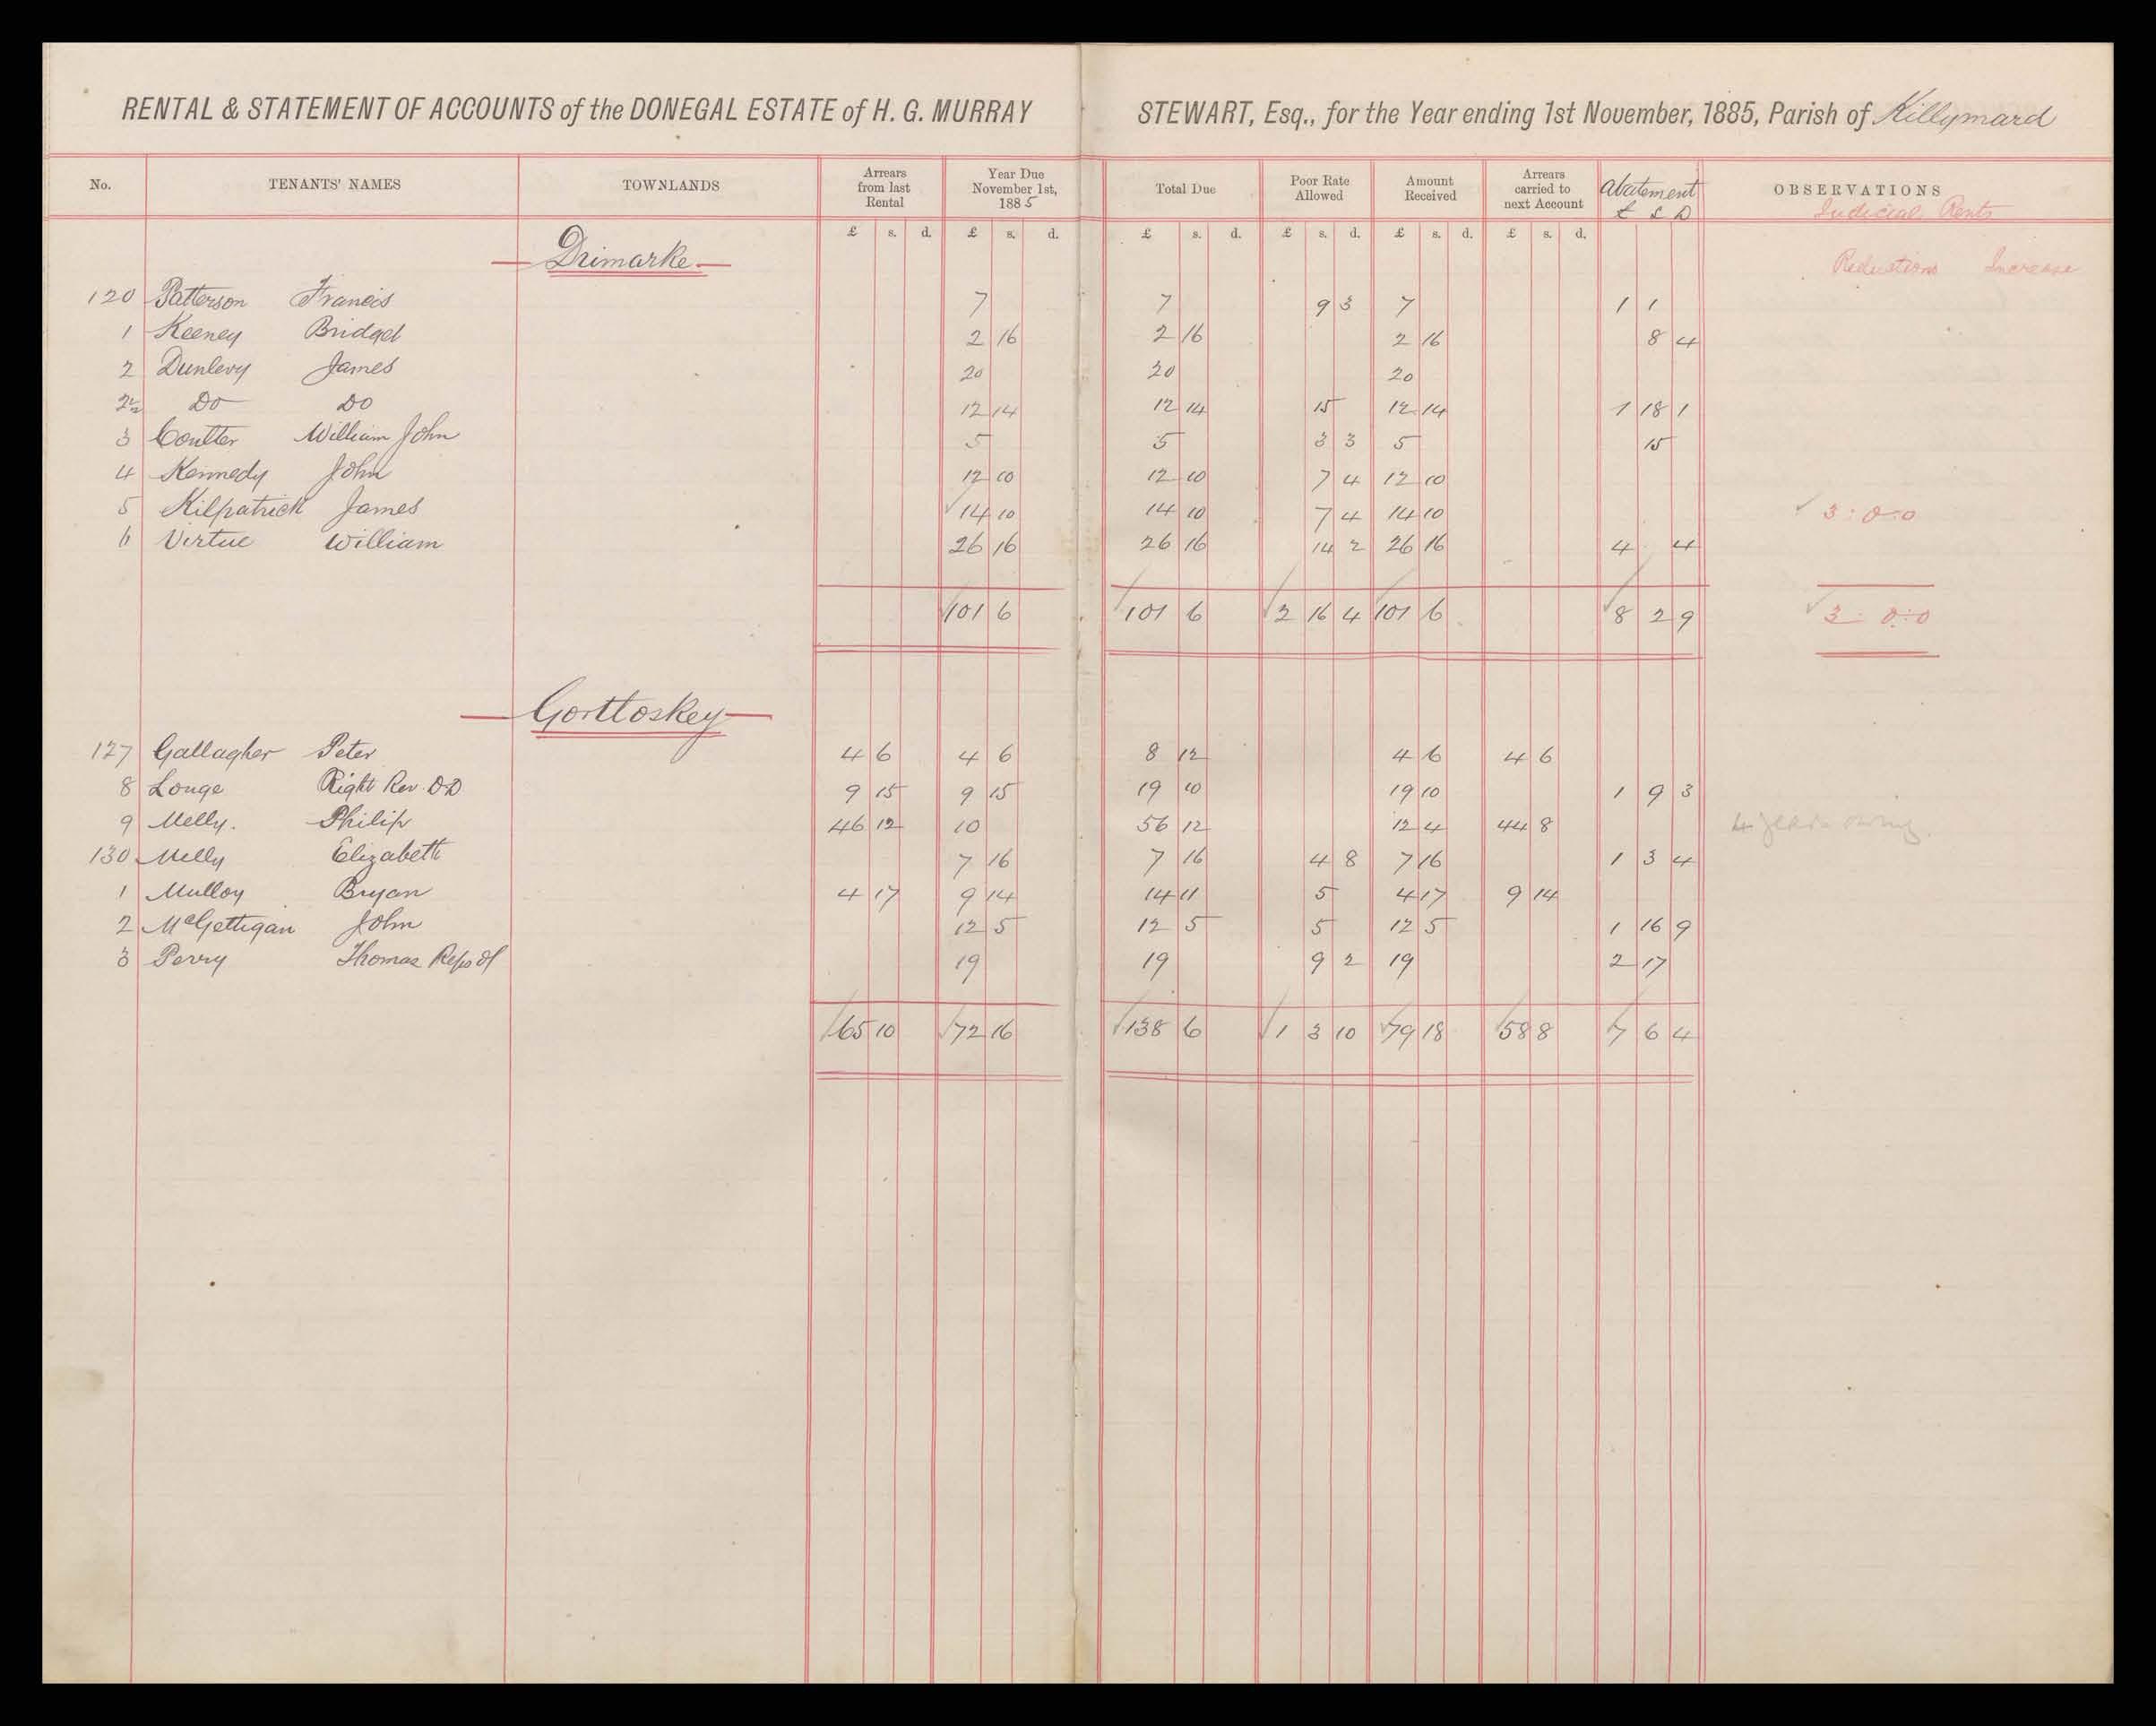 RENTAL & STATEMENT OF ACCOUNTS of the DONEGAL ESTATE of H. G. MURRAY STEWART, Esq., for the Year ending 1st November, 1885, Parish of Killymard
No. TENANTS' NAMES TOWNLANDS Arrears from last Rental Year Due November 1st, 1885 Total Due Poor Rate Allowed Amount Received Arrears carried to next Account Abatement £ S D OBSERVATIONS Judicial Rents
£ s. d. £ s. d. £ s. d. £ s. d. £ s. d. £ s. d.
Drimarke Reductions Increase
120 Patterson Francis 7 7 9 3 7 1 1
1 Keeney Bridget 2 16 2 16 2 16 8 4
2 Dunlevy James 20 20 20
2½ Do Do 12 14 12 14 15 12 14 1 18 1
3 Coulter William John 5 5 3 3 5 15
4 Kennedy John 12 10 12 10 7 4 12 10
5 Kilpatrick James 14 10 14 10 7 4 14 10 3:0:0
6 Virtue William 26 16 26 16 14 2 26 16 4 4
101 6 101 6 2 16 4 101 6 8 2 9 3:0:0
Gorttoskey
127 Gallagher Peter 4 6 4 6 8 12 4 6 4 6
8 Louge Right Rev. DD 9 15 9 15 19 10 19 10 1 9 3
9 Melly. Philip 46 12 10 56 12 12 4 44 8 4 years owing.
130 Melly Elizabeth 7 16 7 16 4 8 7 16 1 3 4
1 Mulloy Bryan 4 17 9 14 14 11 5 4 17 9 14
2 McGettigan John 12 5 12 5 5 12 5 1 16 9
3 Perry Thomas Reps of 19 19 9 2 19 2 17
65 10 72 16 138 6 1 3 10 79 18 58 8 7 6 4